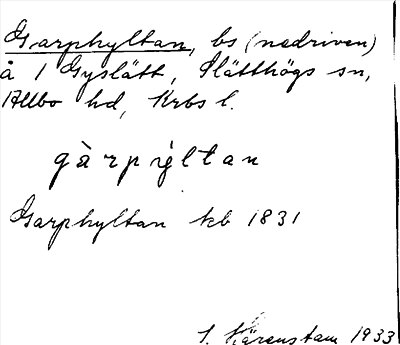 Garphyltan, bs (nedriven)
å 1 Gyslätt, Slätthögs sn,
Allbo hd, Krbs l.
gàrpı̀ltan
Garphyltan kb 1831
Härenstam 1933